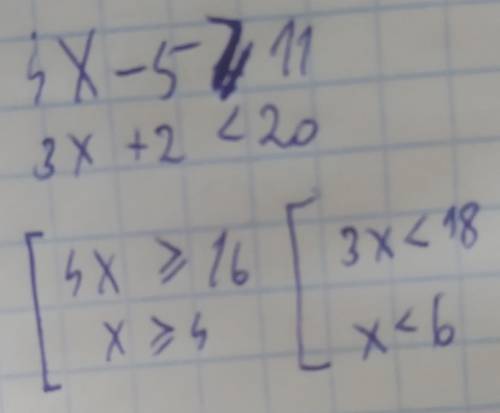 4x - 5 ≥ 11
3x + 2 < 20
4x ≥ 16
x ≥ 4
3x < 18
x < 6